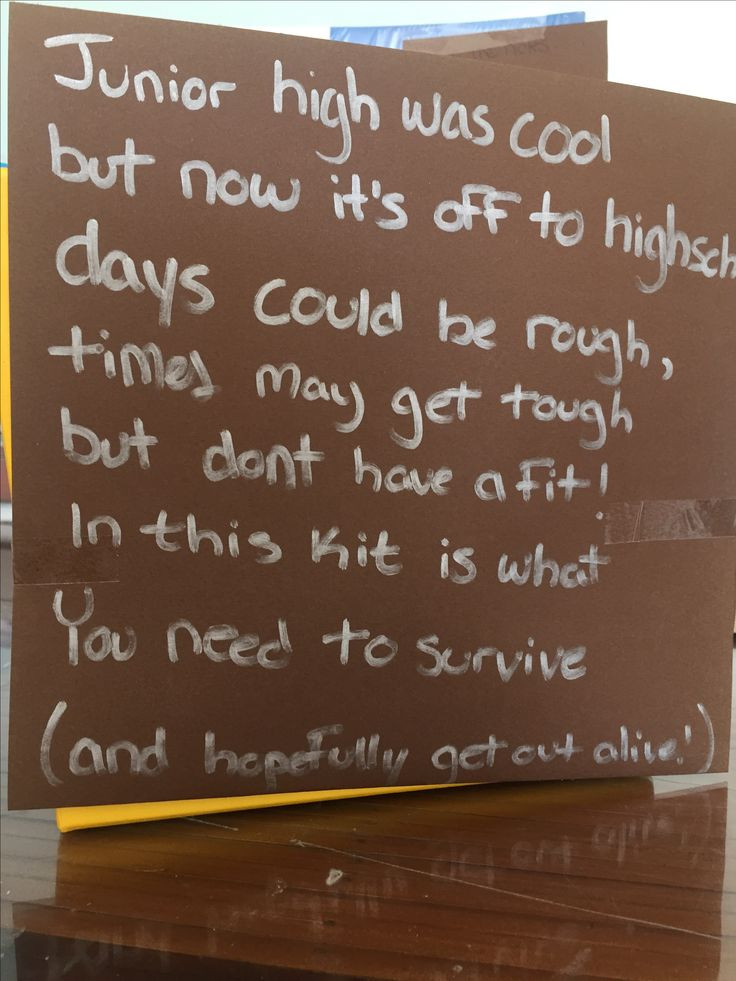 Junior high was cool
but now it's off to highsch
days could be rough,
times may get tough
but dont have a fit!
In this kit is what
You need to survive
(and hopefully get out alive!)